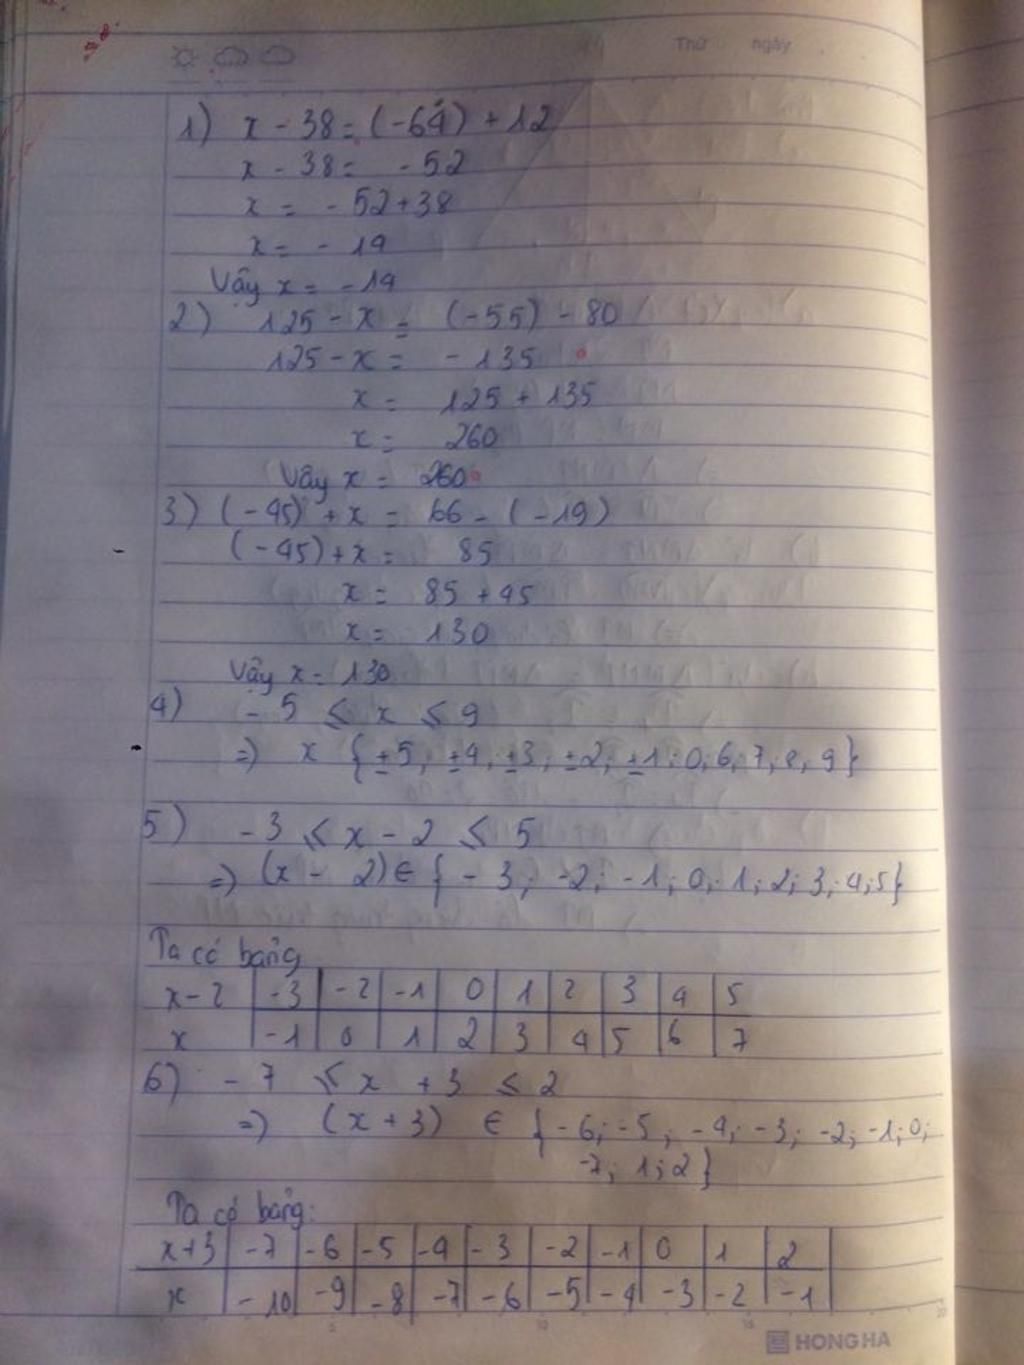 Thứ ngày
1) x - 38 = (-64) + 12
x - 38 = - 52
x = - 52 + 38
x = - 19
Vậy x = - 19
2) 125 - x = (-55) - 80
125 - x = - 135
x = 125 + 135
x = 260
Vậy x = 260
3) (-45) + x = 66 - (-19)
(-45) + x = 85
x = 85 + 45
x = 130
Vậy x = 130
4) - 5 ≤ x ≤ 9
=> x { ±5; ±4; ±3; ±2; ±1; 0; 6; 7; 8; 9 }
5) - 3 ≤ x - 2 ≤ 5
=> (x - 2) ∈ { - 3; -2; -1; 0; 1; 2; 3; 4; 5 }
Ta có bảng
x-2 -3 -2 -1 0 1 2 3 4 5
x -1 0 1 2 3 4 5 6 7
6) - 7 ≤ x + 3 ≤ 2
=> (x + 3) ∈ { - 6; -5; -4; -3; -2; -1; 0;
-7; 1; 2 }
Ta có bảng:
x+3 -7 -6 -5 -4 -3 -2 -1 0 1 2
x -10 -9 -8 -7 -6 -5 -4 -3 -2 -1
5 10 15 20
HONG HA